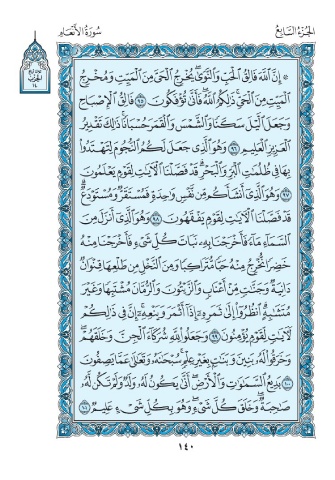 الجزء السابع
سورة الأنعام
۞ إِنَّ اللَّهَ فَالِقُ الْحَبِّ وَالنَّوَىٰ يُخْرِجُ الْحَيَّ مِنَ الْمَيِّتِ وَمُخْرِجُ
الْمَيِّتِ مِنَ الْحَيِّ ذَٰلِكُمُ اللَّهُ فَأَنَّىٰ تُؤْفَكُونَ ٩٥ فَالِقُ الْإِصْبَاحِ
وَجَعَلَ اللَّيْلَ سَكَنًا وَالشَّمْسَ وَالْقَمَرَ حُسْبَانًا ذَٰلِكَ تَقْدِيرُ
الْعَزِيزِ الْعَلِيمِ ٩٦ وَهُوَ الَّذِي جَعَلَ لَكُمُ النُّجُومَ لِتَهْتَدُوا
بِهَا فِي ظُلُمَاتِ الْبَرِّ وَالْبَحْرِ قَدْ فَصَّلْنَا الْآيَاتِ لِقَوْمٍ يَعْلَمُونَ
٩٧ وَهُوَ الَّذِي أَنشَأَكُم مِّن نَّفْسٍ وَاحِدَةٍ فَمُسْتَقَرٌّ وَمُسْتَوْدَعٌ
قَدْ فَصَّلْنَا الْآيَاتِ لِقَوْمٍ يَفْقَهُونَ ٩٨ وَهُوَ الَّذِي أَنزَلَ مِنَ
السَّمَاءِ مَاءً فَأَخْرَجْنَا بِهِ نَبَاتَ كُلِّ شَيْءٍ فَأَخْرَجْنَا مِنْهُ
خَضِرًا نُّخْرِجُ مِنْهُ حَبًّا مُّتَرَاكِبًا وَمِنَ النَّخْلِ مِن طَلْعِهَا قِنْوَانٌ
دَانِيَةٌ وَجَنَّاتٍ مِّنْ أَعْنَابٍ وَالزَّيْتُونَ وَالرُّمَّانَ مُشْتَبِهًا وَغَيْرَ
مُتَشَابِهٍ انظُرُوا إِلَىٰ ثَمَرِهِ إِذَا أَثْمَرَ وَيَنْعِهِ إِنَّ فِي ذَٰلِكُمْ
لَآيَاتٍ لِّقَوْمٍ يُؤْمِنُونَ ٩٩ وَجَعَلُوا لِلَّهِ شُرَكَاءَ الْجِنَّ وَخَلَقَهُمْ
وَخَرَقُوا لَهُ بَنِينَ وَبَنَاتٍ بِغَيْرِ عِلْمٍ سُبْحَانَهُ وَتَعَالَىٰ عَمَّا يَصِفُونَ
١٠٠ بَدِيعُ السَّمَاوَاتِ وَالْأَرْضِ أَنَّىٰ يَكُونُ لَهُ وَلَدٌ وَلَمْ تَكُن لَّهُ
صَاحِبَةٌ وَخَلَقَ كُلَّ شَيْءٍ وَهُوَ بِكُلِّ شَيْءٍ عَلِيمٌ ١٠١
١٤٠